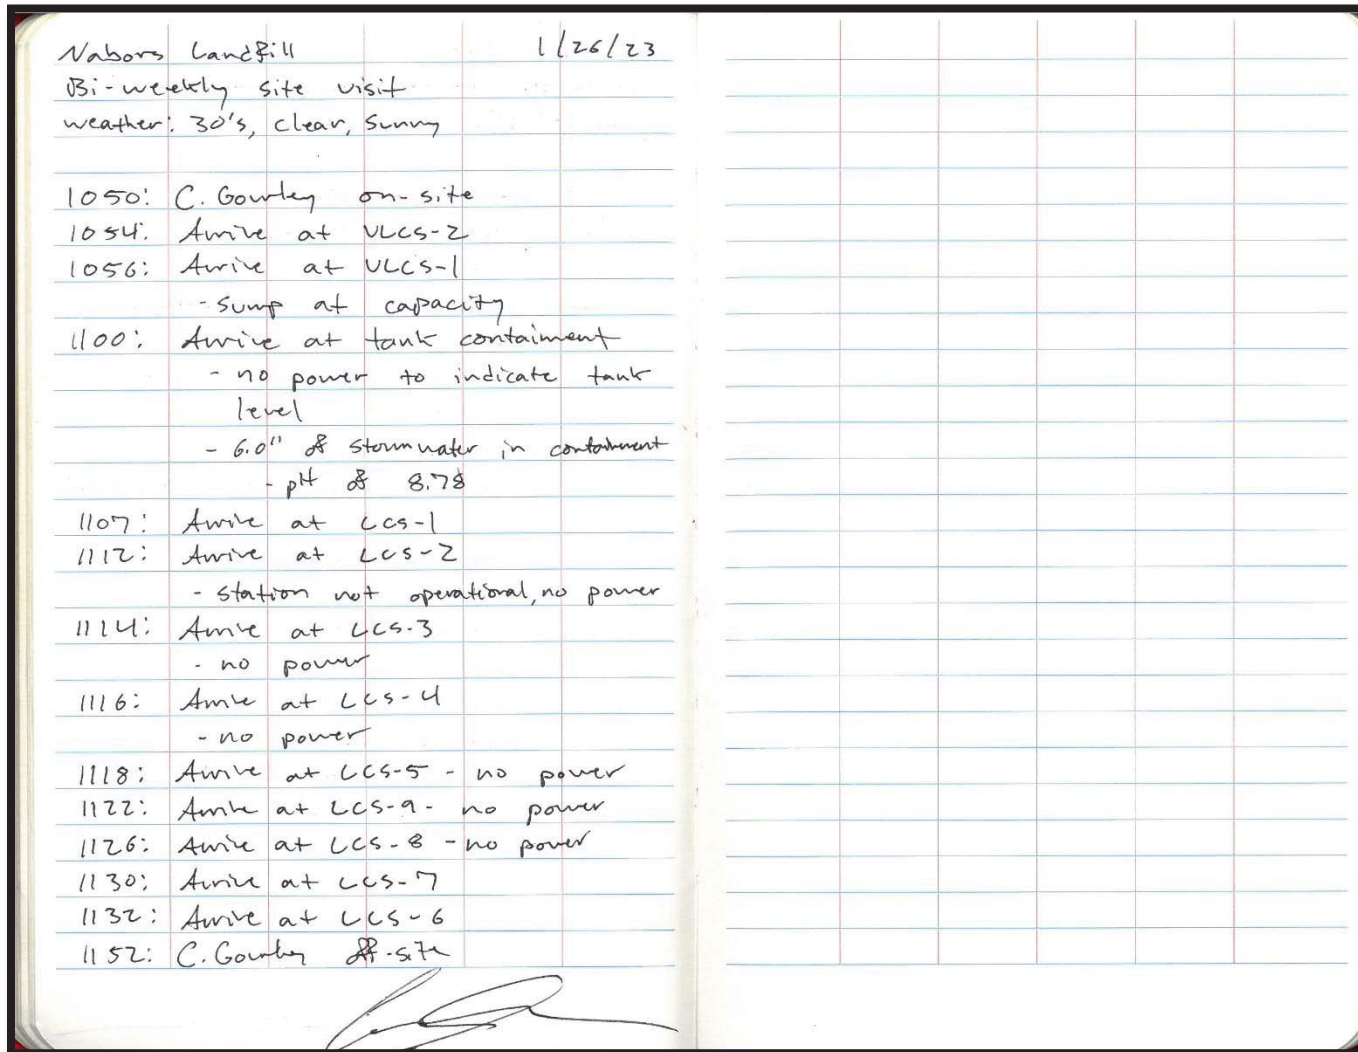 Nabors Landfill 1/26/23
Bi-weekly site visit
weather: 30's, clear, sunny
1050: C. Gourley on-site
1054: Arrive at VLCS-2
1056: Arrive at VLCS-1
- sump at capacity
1100: Arrive at tank contaiment
- no power to indicate tank
level
- 6.0" of stormwater in containment
- pH of 8.78
1107: Arrive at LCS-1
1112: Arrive at LCS-2
- station not operational, no power
1114: Arrive at LCS-3
- no power
1116: Arrive at LCS-4
- no power
1118: Arrive at LCS-5 - no power
1122: Arrive at LCS-9 - no power
1126: Arrive at LCS-8 - no power
1130: Arrive at LCS-7
1132: Arrive at LCS-6
1152: C. Gourley off-site